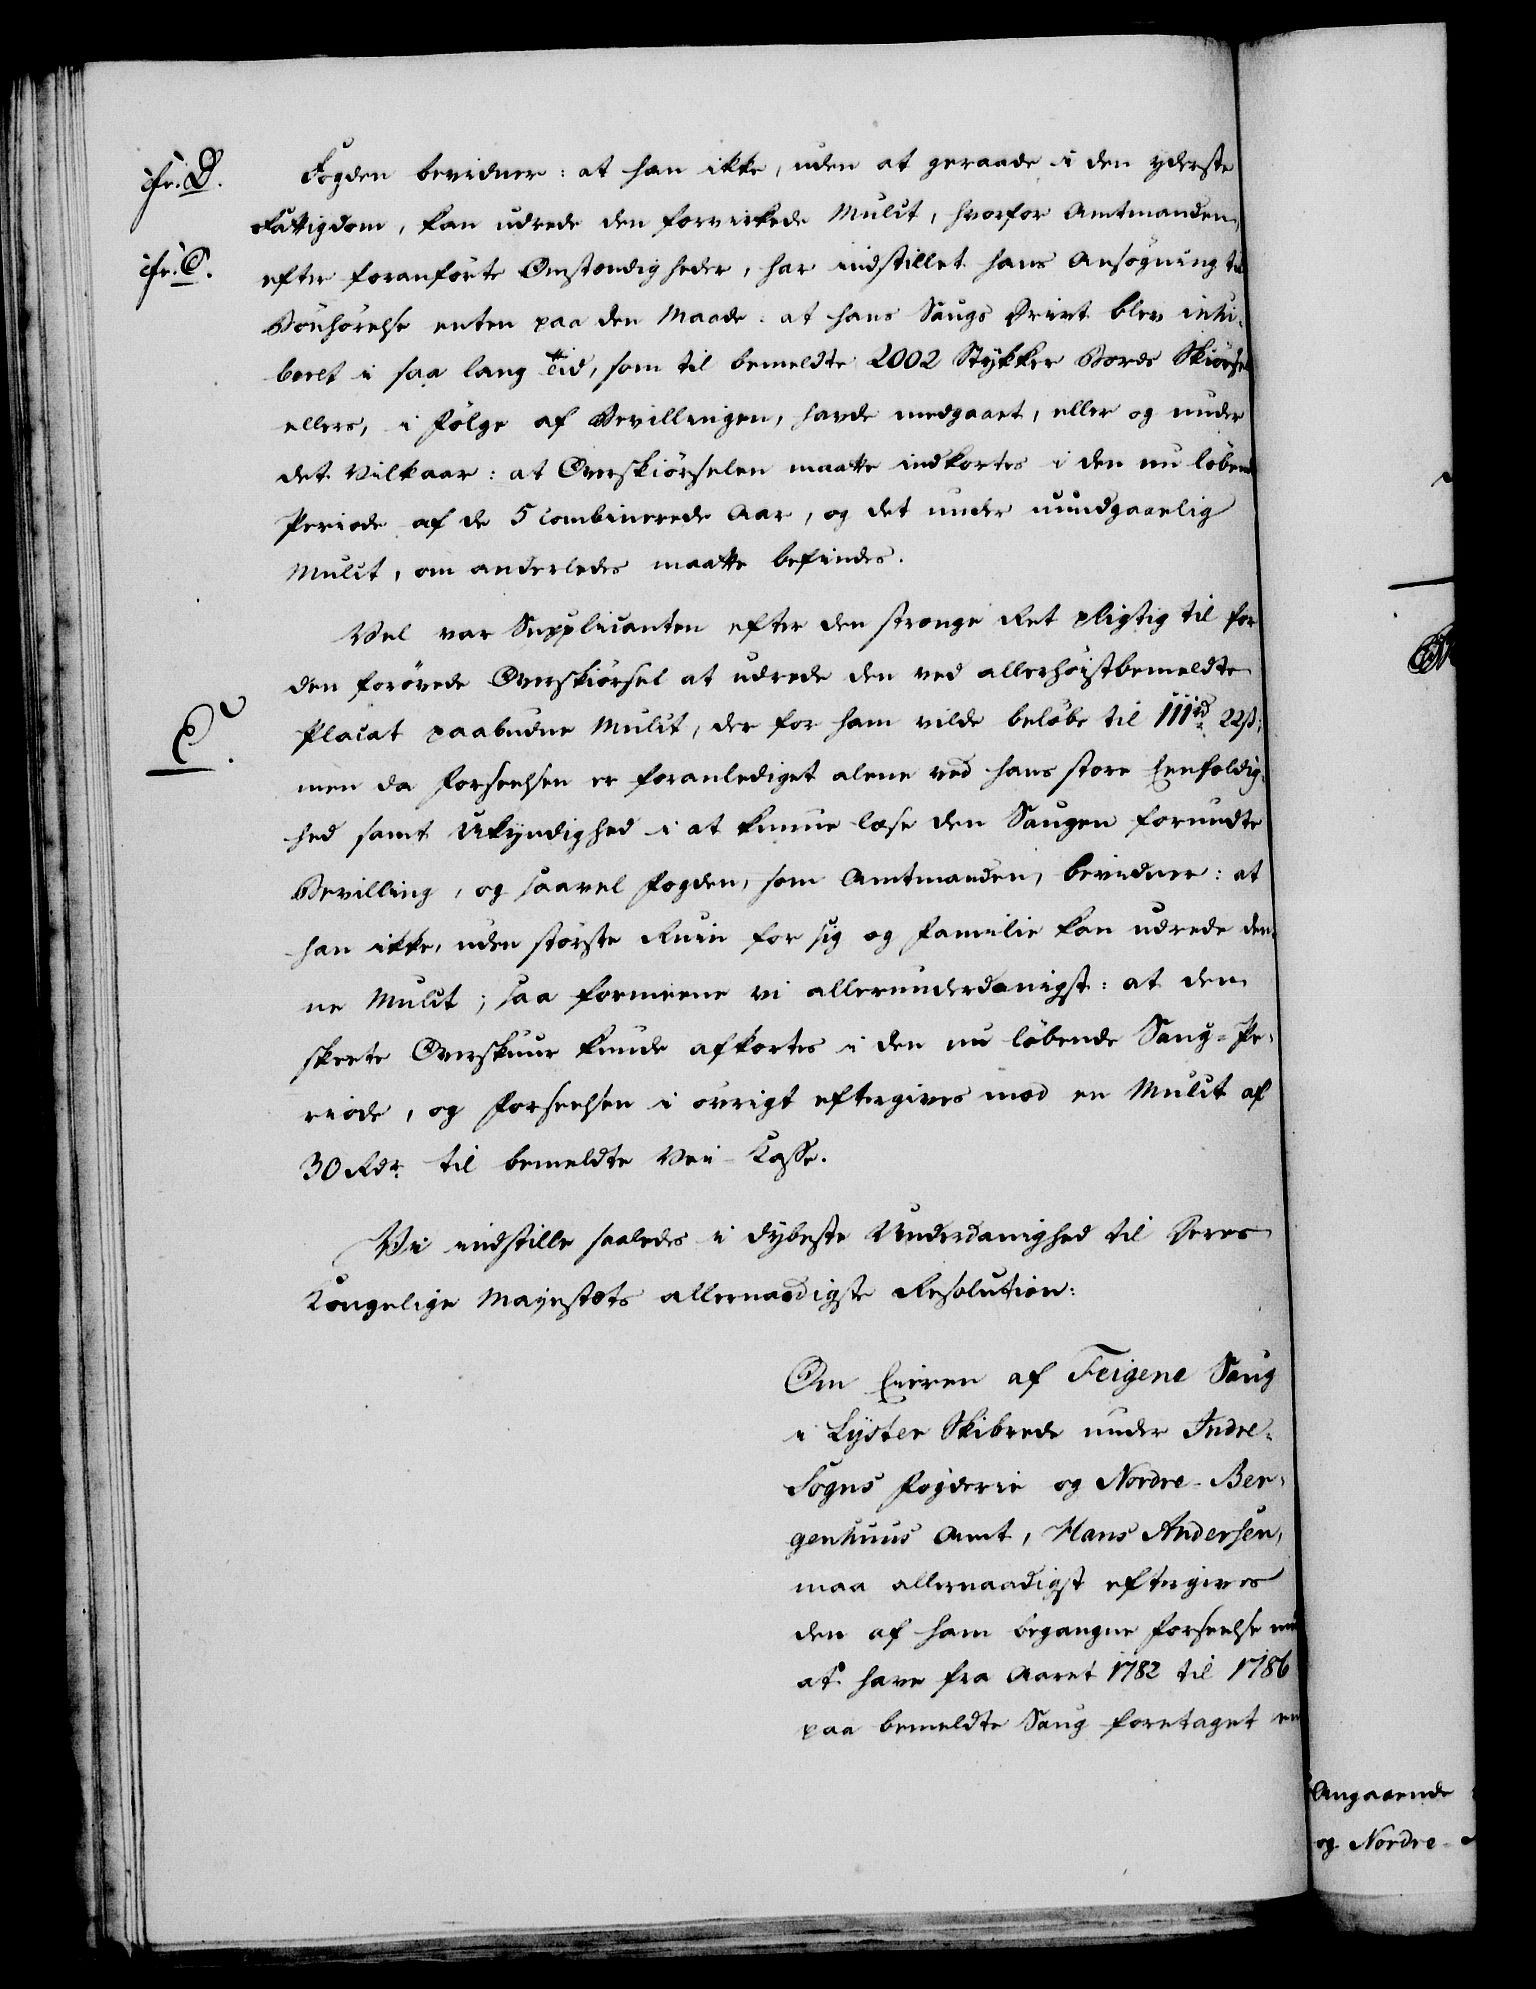 cfr. D.
Fogden bevidner: at han ikke, uden at geraade i den yderste
Fattigdom, kan udrede den forvirkede Mulct, hvorfor Amtmanden,
cfr. C.
efter foranførte Omstændigheder, har indstillet hans Ansøgning til
Bønhørelse enten paa den Maade: at hans Saugs Drivt blev inhi-
beret i saa lang Tid, som til bemeldte 2002 Stykker Bords Skiørsel
ellers, i Følge af Bevillingen, havde medgaaet, eller og under
det Vilkaar: at Overskiørselen maatte indkortes i den nu løbende
Periode af de 5 combinerede Aar, og det under uundgaaelig
Mulct, om anderledes maatte befindes.
Vel var Supplicanten efter den strænge Ret pligtig til for
den forøvede Overskiørsel at udrede den ved allerhøistbemeldte
E.
Placat paabudne Mulct, der for ham vilde beløbe til 111 rd 22 ß;
men da Forseelsen er foranlediget alene ved hans store Eenfoldig-
hed samt Ukyndighed i at kunne læse den Saugen forundte
Bevilling, og saavel Fogden, som Amtmanden, bevidner: at
han ikke, uden største Ruin for sig og Familie kan udrede den-
ne Mulct; saa formeene vi allerunderdanigst: at den
skeete Overskuur kunde afkortes i den nu løbende Saug-Pe-
riode, og Forseelsen i øvrigt eftergives mod en Mulct af
30 Rdr. til bemeldte Vei-Kasse.
Vi indstille saaledes i dybeste Underdanighed til Deres
Kongelige Majestæts allernaadigste Resolution:
Om Eieren af Feigene Saug
i Lyster Skibrede under Indre-
Sogns Fogderie og Nordre-Ber-
genhuus Amt, Hans Andersen,
maa allernaadigst eftergives
den af ham begangne Forseelse med
at have fra Aaret 1782 til 1786
paa bemeldte Saug foretaget en
Angaaende
og Nordre-